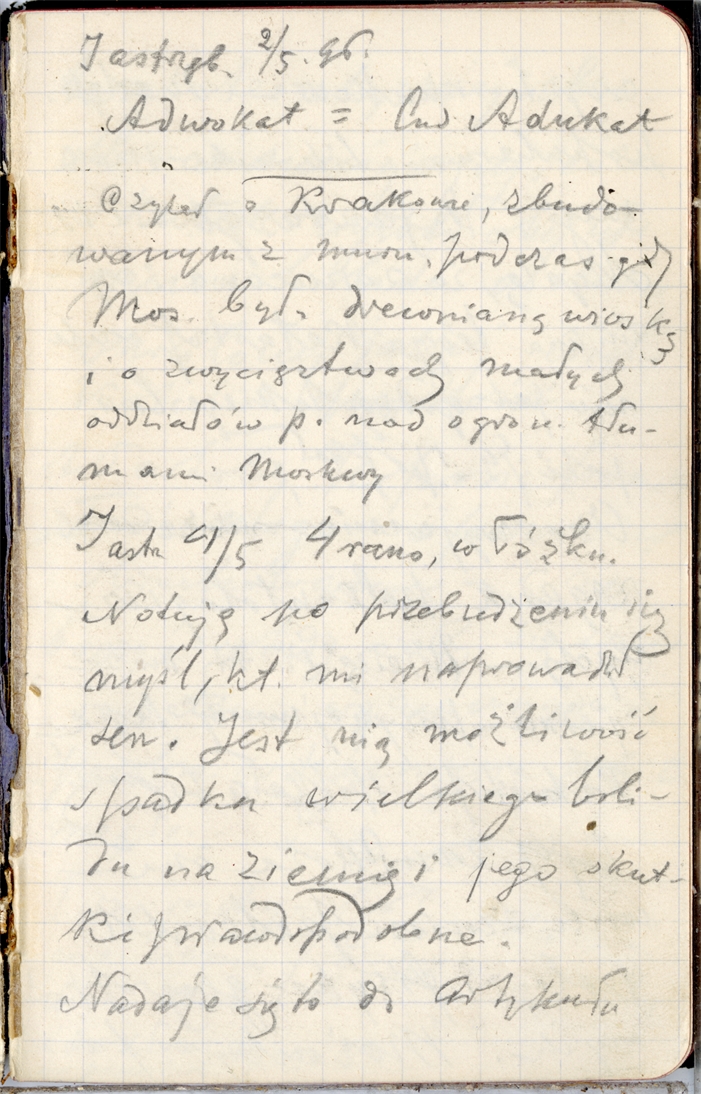 Jastrzęb. 2/5. 96.
Adwokat = Adukat
Czytał o Krakowie, zbudo-
wanym z muru, podczas gdy
Mos. był. drewnianą wioską
i o zwycięztwach małych
oddziałów p. nad ogrom. tłu-
mami Moskwy
Jastr /5 4 rano, w łóżku.
Notuję po przebudzeniu się
myśl, kt. mi naprowadził
sen. Jest nią możliwość
spadku wielkiego boli-
du na ziemię i jego skut-
ki prawdopodobne.
Nadaje się to do artykułu